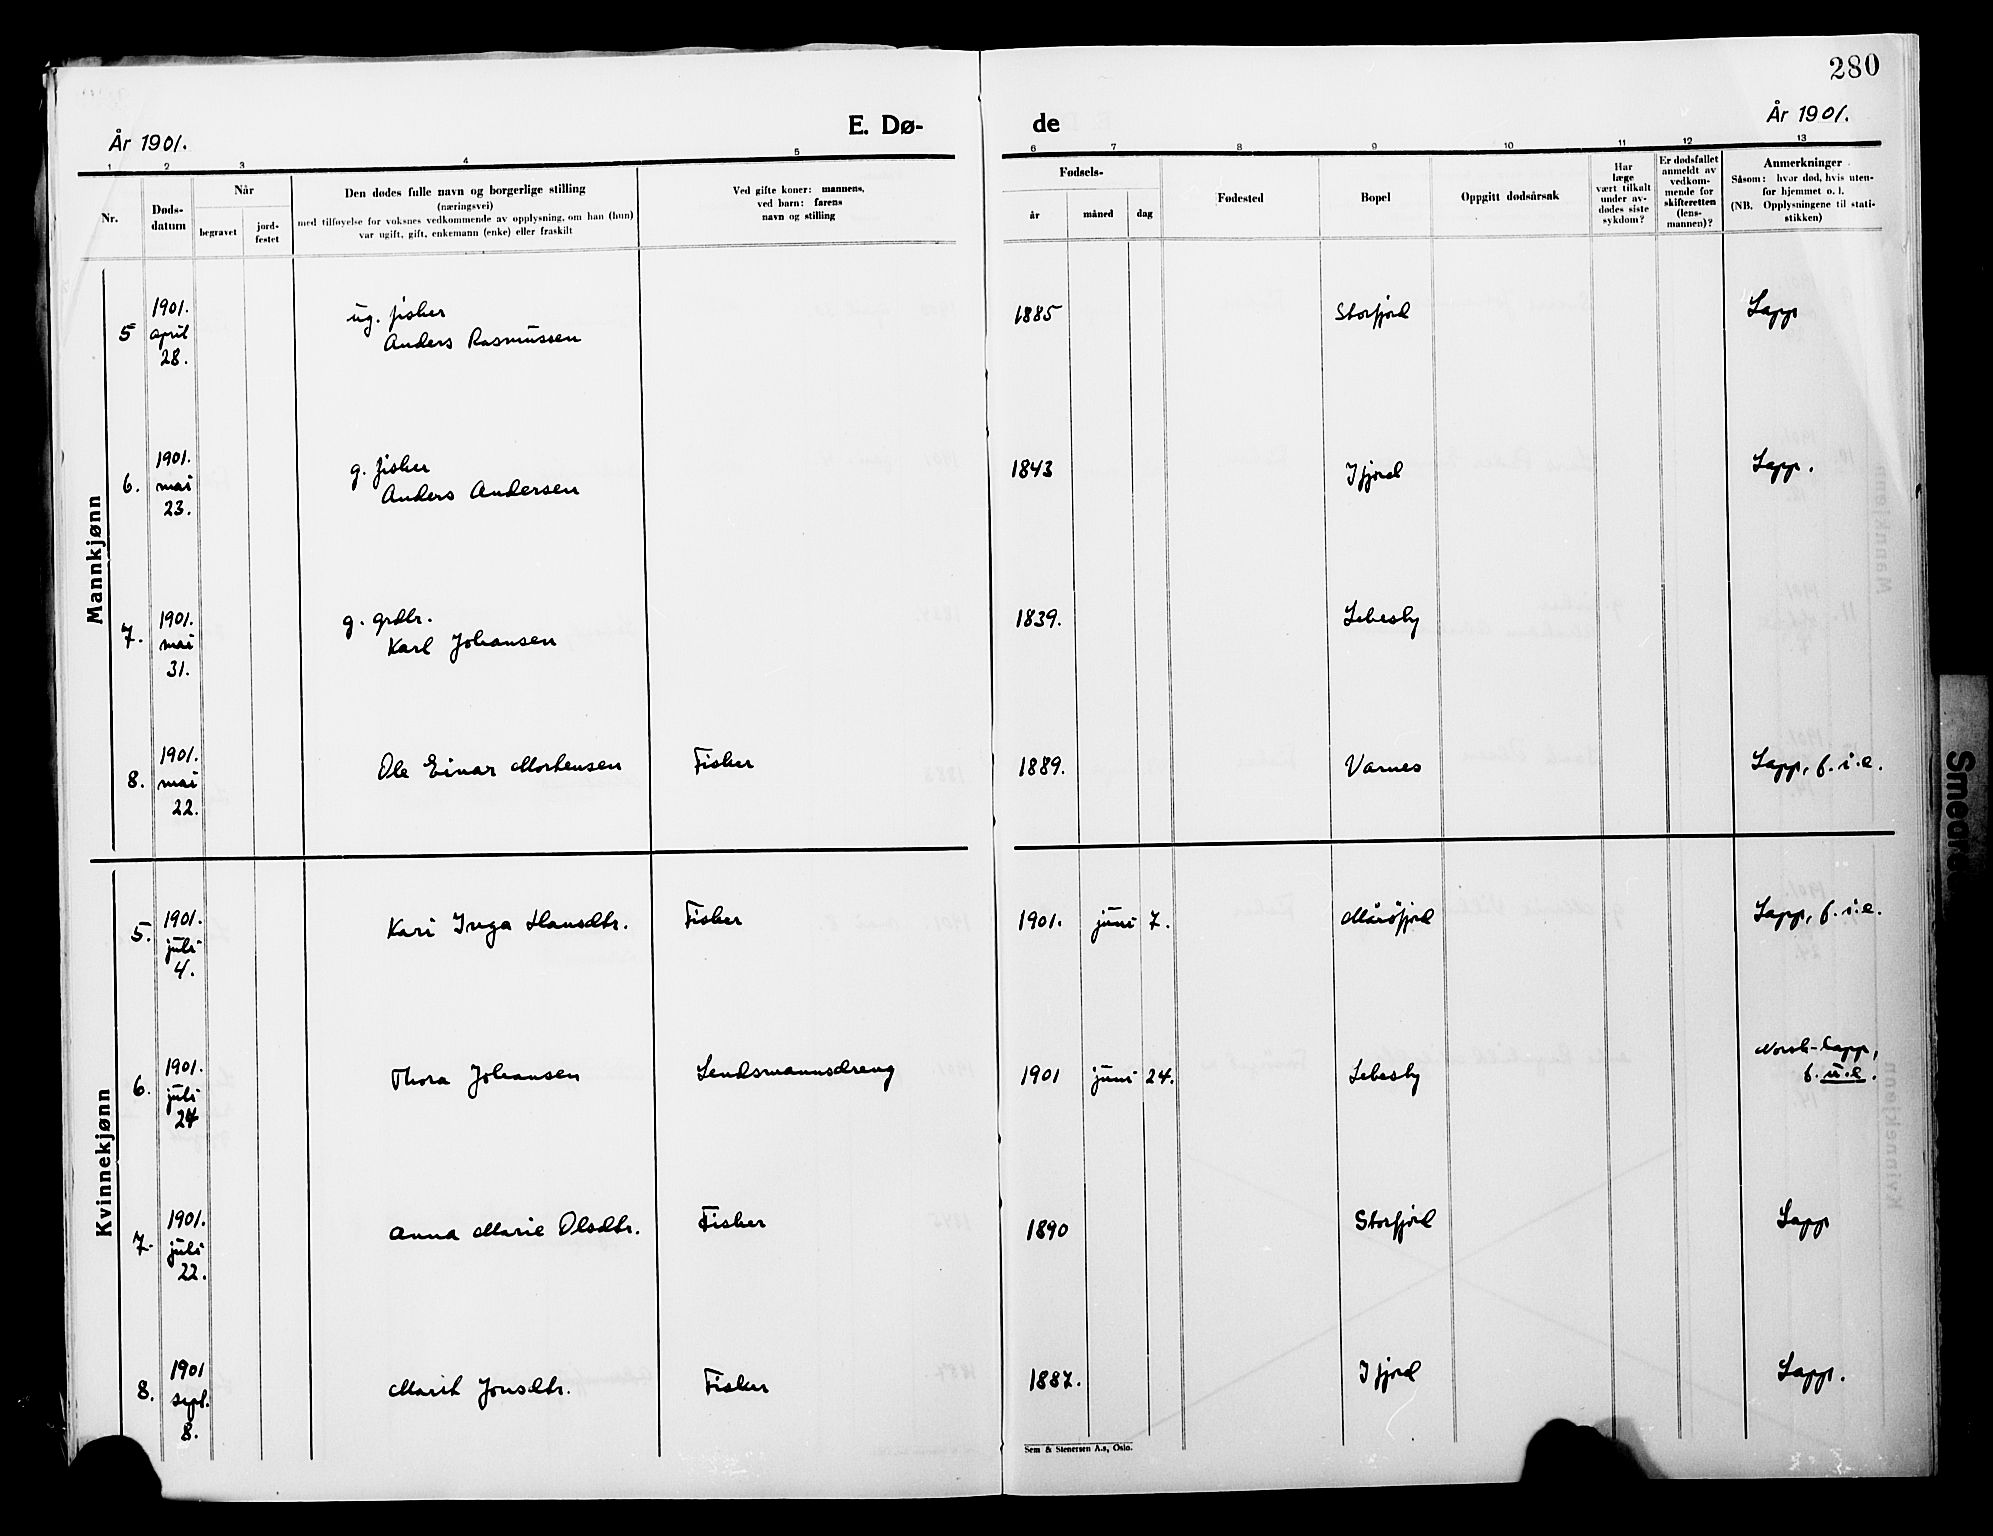 280
År 1901.
E. Dø-
de
År 1901.
1 2 3 4 5 6 7 8 9 10 11 12 13
Nr.
Døds-
datum
Når
begravet
jord-
festet
Den dødes fulle navn og borgerlige stilling
(næringsvei)
med tilføyelse for voksnes vedkommende av opplysning, om han (hun)
var ugift, gift, enkemann (enke) eller fraskilt
Ved gifte koner: mannens,
ved barn: farens
navn og stilling
Fødsels-
år
måned
dag
Fødested
Bopel
Oppgitt dødsårsak
Har
læge
vært tilkalt
under av-
dødes siste
sykdom?
Er dødsfallet
anmeldt av
vedkom-
mende for
skifteretten
(lens-
mannen)?
Anmerkninger
Såsom: hvor død, hvis uten-
for hjemmet o. l.
(NB. Opplysningene til stati-
stikken)
Mannkjønn
5
1901.
april
28.
ug. fisker
Anders Rasmussen
1885
Storfjord
Lapp
6.
1901.
mai
23.
g. fisker
Anders Andersen
1843
Ifjord
Lapp.
7.
1901.
mai
31.
g. grdbr.
Karl Johansen
1839.
Lebesby
8.
1901.
mai
22.
Ole Einar Mortensen
Fisker
1889.
Varnes
Lapp, f. i. e.
Kvinnekjønn
5.
1901.
juli
4.
Kari Inga Hansdtr.
Fisker
1901. juni 7.
Mårøfjord
Lapp, f. i. e.
6.
1901.
juli
24
Thora Johansen
Lendsmannsdreng
1901 juni 24.
Lebesby
Norsk-lapp,
f. u. e.
7.
1901.
juli
22.
Anna Marie Olsdtr.
Fisker
1890
Storfjord
Lapp
8.
1901
sept.
8.
Marit Jonsdtr.
Fisker
1887.
Ifjord
Lapp.
Sem & Stenersen A.s, Oslo.